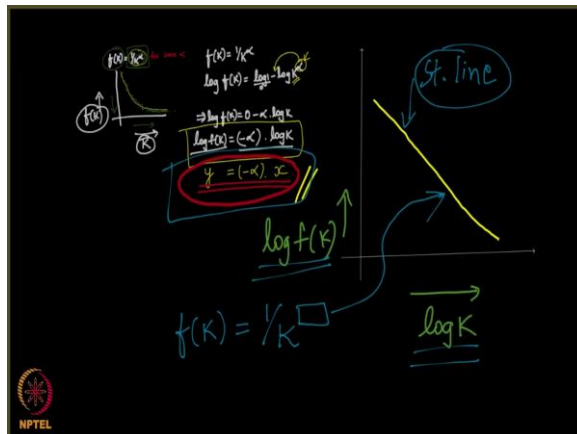 f(K) = 1/K^α for some α
f(K)
K
f(K) = 1/K^α
log f(K) = log 1 - log K^α
⇒ log f(K) = 0 - α . log K
log f(K) = (-α) . log K
y = (-α) . x
St. line
log f(K)
f(K) = 1/K^□
log K
NPTEL